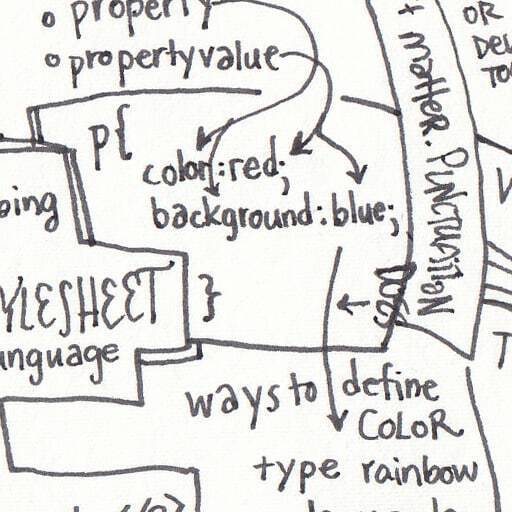 o property
o propertyvalue
OR
p{
color:red;
background:blue;
}
YLESHEET
nguage
+ MATTER. PUNCTUATION
DOES
ways to define
COLOR
type rainbow